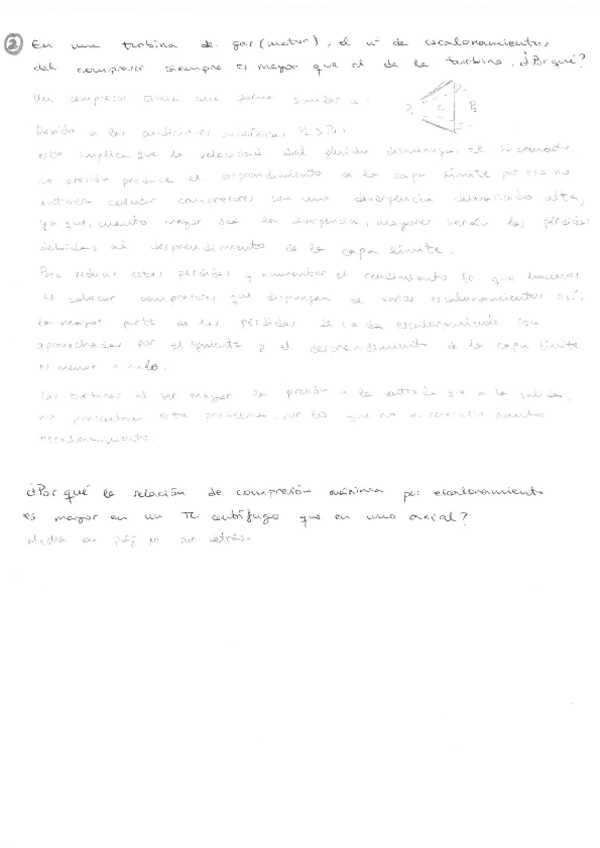 2 En una turbina de gas (motor), el nº de escalonamientos
del compresor siempre es mayor que el de la turbina. ¿Por qué?
Un compresor tiene una forma similar a:
C
Debido a las condiciones
esto implica que la velocidad del fluido disminuya. El incremento
de presión produce el desprendimiento de la capa límite por eso no
interesa colocar compresores con una divergencia demasiado alta,
ya que, cuanto mayor sea la divergencia, mayores serán las pérdidas
debidas al desprendimiento de la capa límite.
Para reducir estas pérdidas y aumentar el rendimiento lo que hacemos
es colocar compresores que dispongan de varios escalonamientos así,
la mayor parte de las pérdidas de cada escalonamiento son
aprovechadas por el siguiente y el desprendimiento de la capa límite
es menor o nulo.
Las turbinas al ser mayor la presión a la entrada que a la salida,
no presentan este problema, por lo que no es necesario tantos
escalonamientos.
¿Por qué la relación de compresión máxima por escalonamiento
es mayor en un TC centrífugo que en uno axial?
Hecha en pág por detrás.